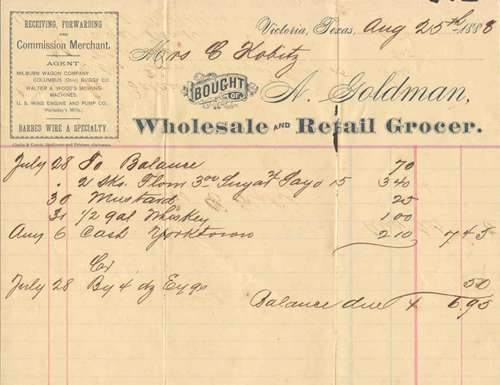 RECEIVING, FORWARDING
AND
Commission Merchant.
AGENT
MILBURN WAGON COMPANY
COLUMBUS (Ohio) BUGGY CO.
WALTER A. WOOD'S MOWING
MACHINES.
U. S. WIND ENGINE AND PUMP CO.
(Halladay's Mills.)
BARBED WIRE A SPECIALTY.
Victoria, Texas, Aug 25th 1888
Mrs C Kobitz
BOUGHT OF A. GOLDMAN,
Wholesale AND Retail Grocer.
July 28 To Balance 70
" 2 Sks. Flour 3.00 Sugar 15 340
30 Mustard 25
31 1/2 gal Whiskey 1.00
Aug 6 Cash Yorktown 210 745
Cr
July 28 By 4 dz Eggs 50
Balance due 6.95